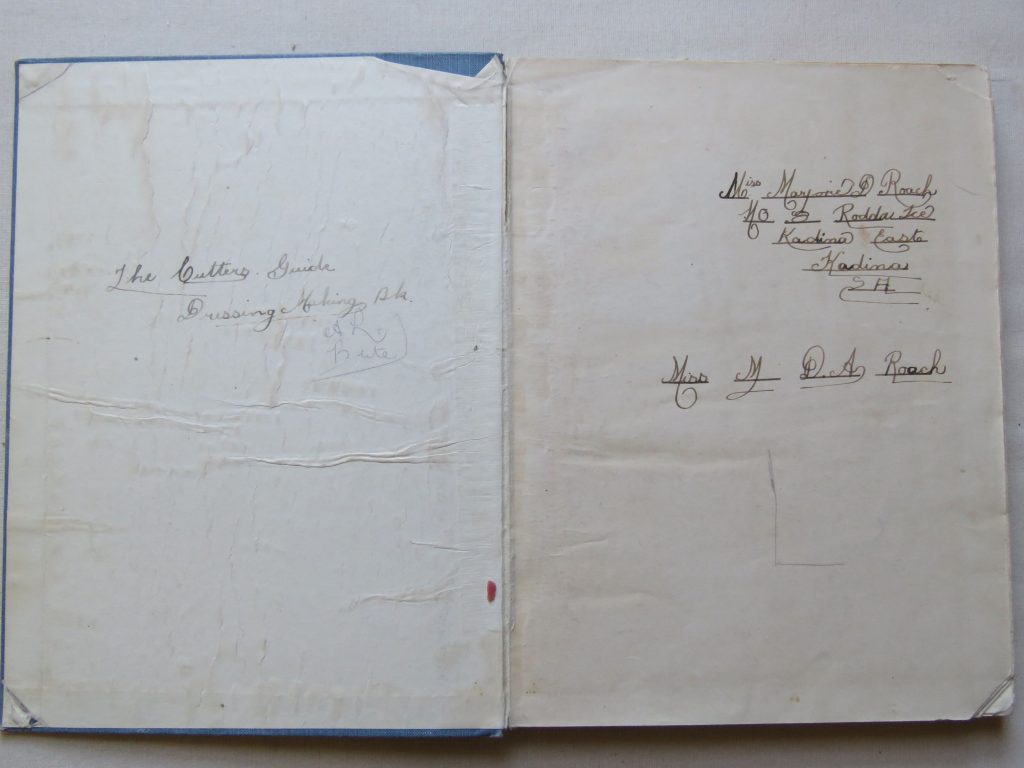 The Cutters Guide
Dressing Making Bk.
Miss Marjorie D Roach
No 3 Rodda Tce
Kadina East
Kadina
S A
Miss M D. A Roach